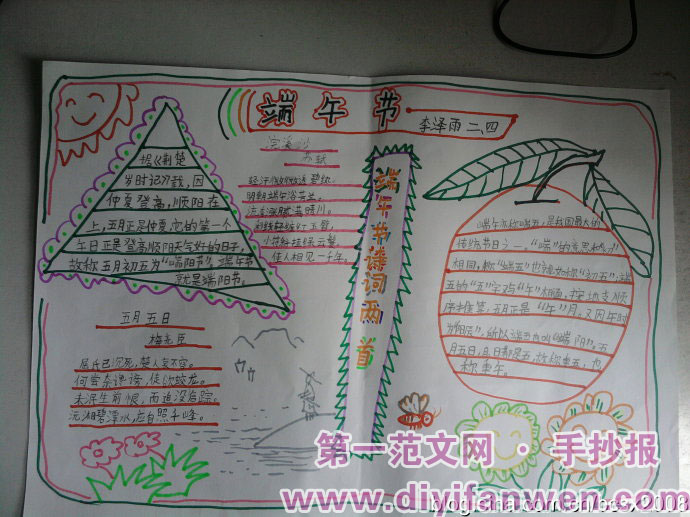 端午节
李泽雨 二、四
据《荆楚
岁时记》载,因
仲夏登高,顺阳在
上,五月正是仲夏,它的第一个
午日正是登高顺阳天气好的日子,
故称五月初五为“端阳节”。端午节
就是端阳节。
五月五日
梅尧臣
屈氏已沉死,楚人哀不容。
何尝奈谗谤,徒欲却蛟龙。
未泯生前恨,而追没后踪。
沅湘碧潭水,应自照千峰。
浣溪沙
苏轼
轻汗微微透碧纨,
明朝端午浴芳兰。
流香涨腻满晴川。
彩线轻缠红玉臂,
小符斜挂绿云鬟。
佳人相见一千年。
端午节诗词两首
端午亦称端五,是我国最大的
传统节日之一,“端”的意思和“初”
相同,称“端五”也就如称“初五”;端
五的“五”字
按地支顺
序推算,五月正是“午”月,又因午时
五月五日,
称重午。
第一范文网·手抄报
www.diyifanwen.com